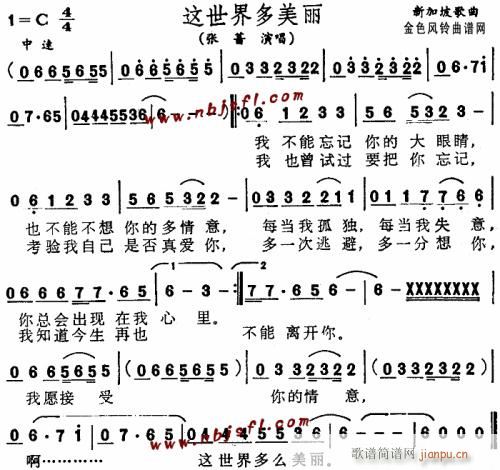 1=C 4/4 这世界多美丽 新加坡歌曲
中速 (张蔷 演唱) 金色风铃曲谱网
0665655 | 06656565 | 03323322 | 06·7i |
07·65 | 04445536 | 6 - - ) ‖: 06 1233 | 56 5323 - |
www.nbjsfl.com
我不能忘记 你的大眼睛,
我也曾试过 要把你忘记,
06 1233 | 565322 - | 0332211 | 0117766 |
也不能不想 你的多情意, 每当我孤独, 每当我失意,
考验我自己 是否真爱你, 多一次逃避, 多一分想你,
0666677·65 | 6 - 3 - :‖ 77·656 | 6 - - - | 6 - XXXXXXXX |
你总会出现在我 心里。
我知道今生再也 不能离开你。
0665655 | (06656565) | 0332322 | (03323322) |
我愿接受 你的情意,
06·7i | 07·65 | 0444553 6 | 6 - - - |
啊………… 这世界多么美丽。
www.nbjsfl.com
歌谱简谱网
jianpu.cn